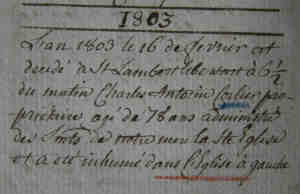 1803
L'an 1803 le 16 de fevrier est
decedé a St Lambert Libersart à 6½
du matin Charles Antoine Corlier pro-
prietaire agé de 78 ans administré
des Snts de notre mere la Ste Eglise
et a été inhumé dans l'Eglise à gauche